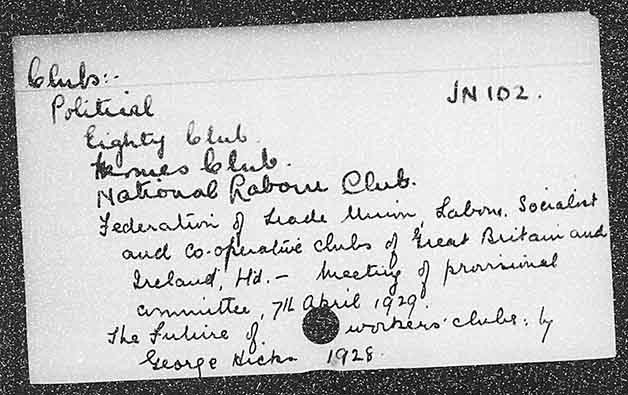 Clubs:-
Political
JN 102.
Eighty Club.
Club.
National Labour Club.
Federation of Trade Union, Labour, Socialist
and Co-operative clubs of Great Britain and
Ireland, Ltd. - Meeting of provisional
committee, 7th April 1929.
The Future of workers' clubs: by
George Hicks 1928.